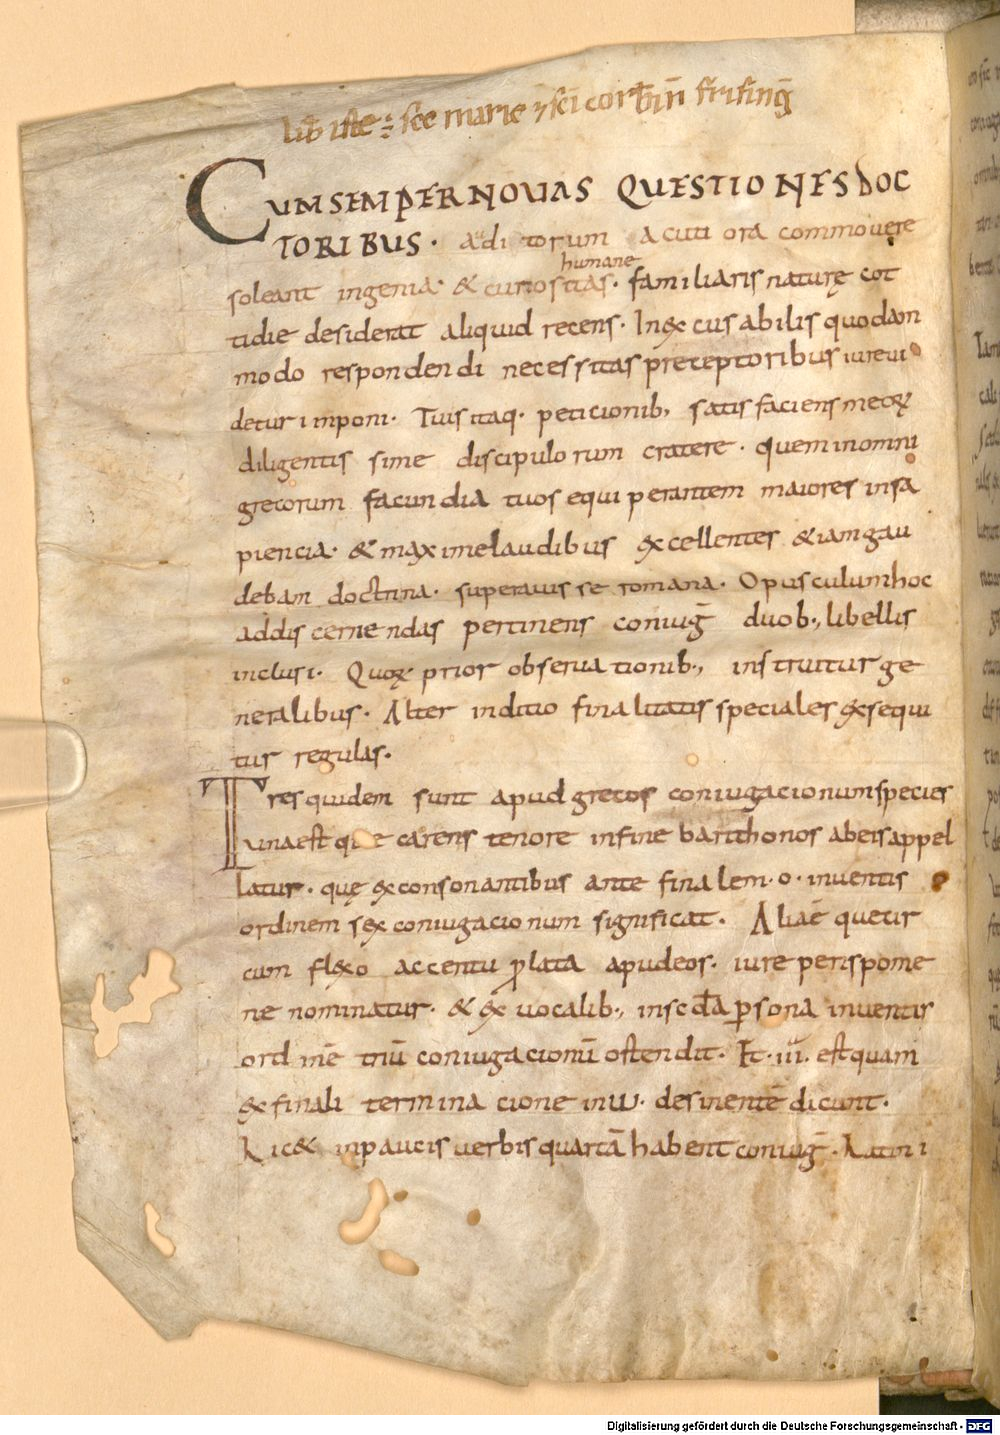 lib̄ iste ÷ sc̄e marie ⁊ sc̄i corƀin̄ frisinḡ
CUM SEMPER NOUAS QUESTIONES DOC
TORIBUS. auditorum acuti ora commouere
humane
soleant ingenia. & curiositas. familiaris naturę cot
tidie desiderat aliquid recens. Inexcusabilis quodam
modo respondendi necessitas preceptoribus iure ui
detur imponi. Tuis itaq. peticionib; satis faciens meoꝝ
diligentis sime discipulorum cratere. quem in omni
grecorum facundia tuos equiperantem maiores in sa
piencia. & maxime laudibus excellentes & iam gau
debam doctrina. superauisse romana. Opusculum hoc
ad discernendas pertinens coniuḡ duob; libellis
inclusi. Quoꝝ prior obseruationib; instruitur ge
neralibus. Alter inditio finalitatis speciales exsequi
tur regulas.
Tres quidem sunt apud grecos coniugacionum species
una est quae carens tenore in fine barithonos ab eis appel
latur. quę ex consonantibus ante finalem .o. inuentis
ordinem sex coniugacionum significat. Alia ē que cir
cum flexo accentu ꝓlata apud eos. iure perispome
ne nominatur. & ex uocalib; in scđa ꝑsona inuentis
ordinē triū coniugacionū ostendit. Et .iii. est quam
ex finali terminacione in ω. desinentē dicunt.
Lic& in paucis uerbis quartā habent coniuḡ. Latini
Digitalisierung gefördert durch die Deutsche Forschungsgemeinschaft - DFG